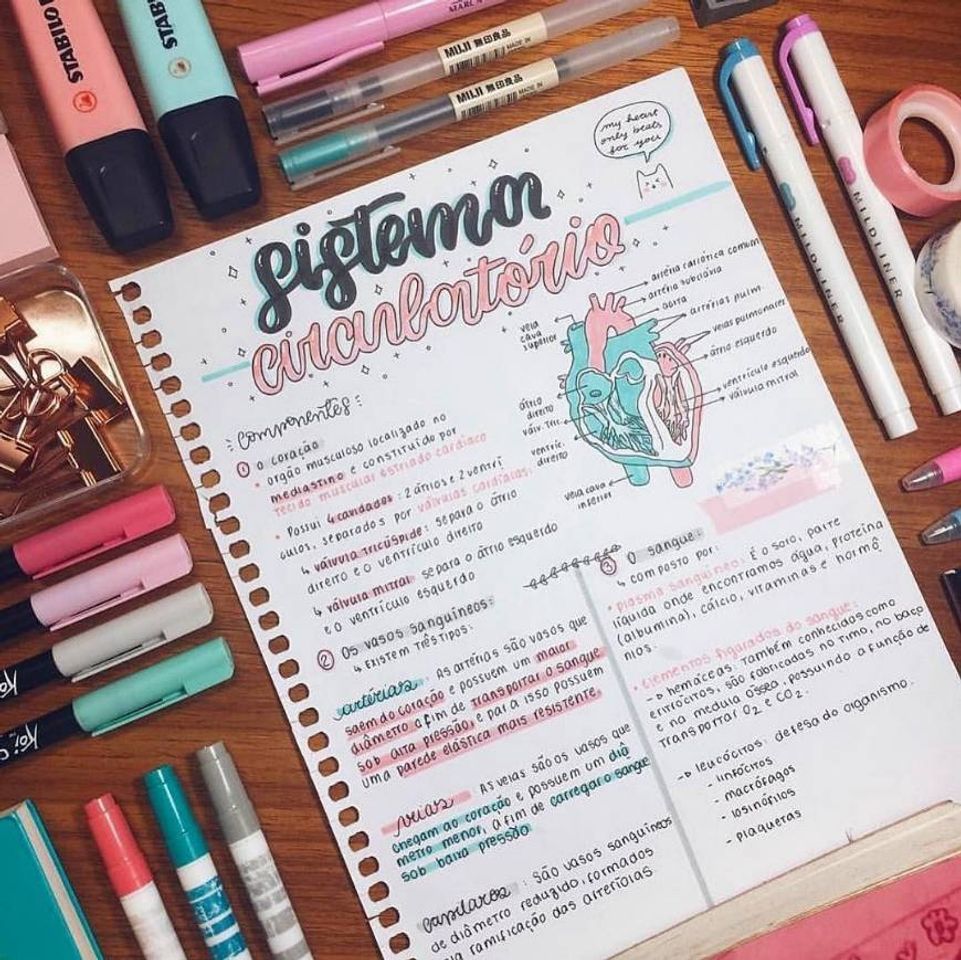 STABILO
STABILO
MUJI 無印良品
MADE IN
MUJI 無印良品
MADE IN
MILDLINER
MILDLINER
my heart
only beats
for you
sistema
circulatório
artéria carótica comum
artéria subclávia
aorta
artérias pulm.
veias pulmonares
átrio esquerdo
ventrículo esquerdo
válvula mitral
veia
cava
superior
átrio
direito
válv. tric.
ventric.
direito
veia cava
inferior
componentes:
① O coração
• órgão musculoso localizado no
mediastino e constituído por
tecido muscular estriado cardíaco
• Possui 4 cavidades: 2 átrios e 2 ventrí
culos, separados por válvulas cardíacas:
↳ válvula tricúspide: separa o átrio
direito e o ventrículo direito
↳ válvula mitral: separa o átrio esquerdo
e o ventrículo esquerdo
② Os vasos sanguíneos:
↳ Existem três tipos:
artérias: As artérias são vasos que
saem do coração e possuem um maior
diâmetro a fim de transportar o sangue
sob alta pressão, e para isso possuem
uma parede elástica mais resistente.
veias: As veias são os vasos que
chegam ao coração e possuem um diâ
metro menor, a fim de carregar o sangue
sob baixa pressão
capilares: são vasos sanguíneos
de diâmetro reduzido, formados
ramificação das arteríolas
③ O sangue:
↳ composto por:
• plasma sanguíneo: É o soro, parte
líquida onde encontramos água, proteína
(albumina), cálcio, vitaminas e hormô
nios.
• Elementos figurados do sangue:
→ hemáceas: Também conhecidos como
eritrócitos, são fabricados no timo, no baço
e na medula óssea, possuindo a função de
transportar O2 e CO2.
→ leucócitos: defesa do organismo.
- linfócitos
- macrófagos
- eosinófilos
- plaquetas
Koi
Koi